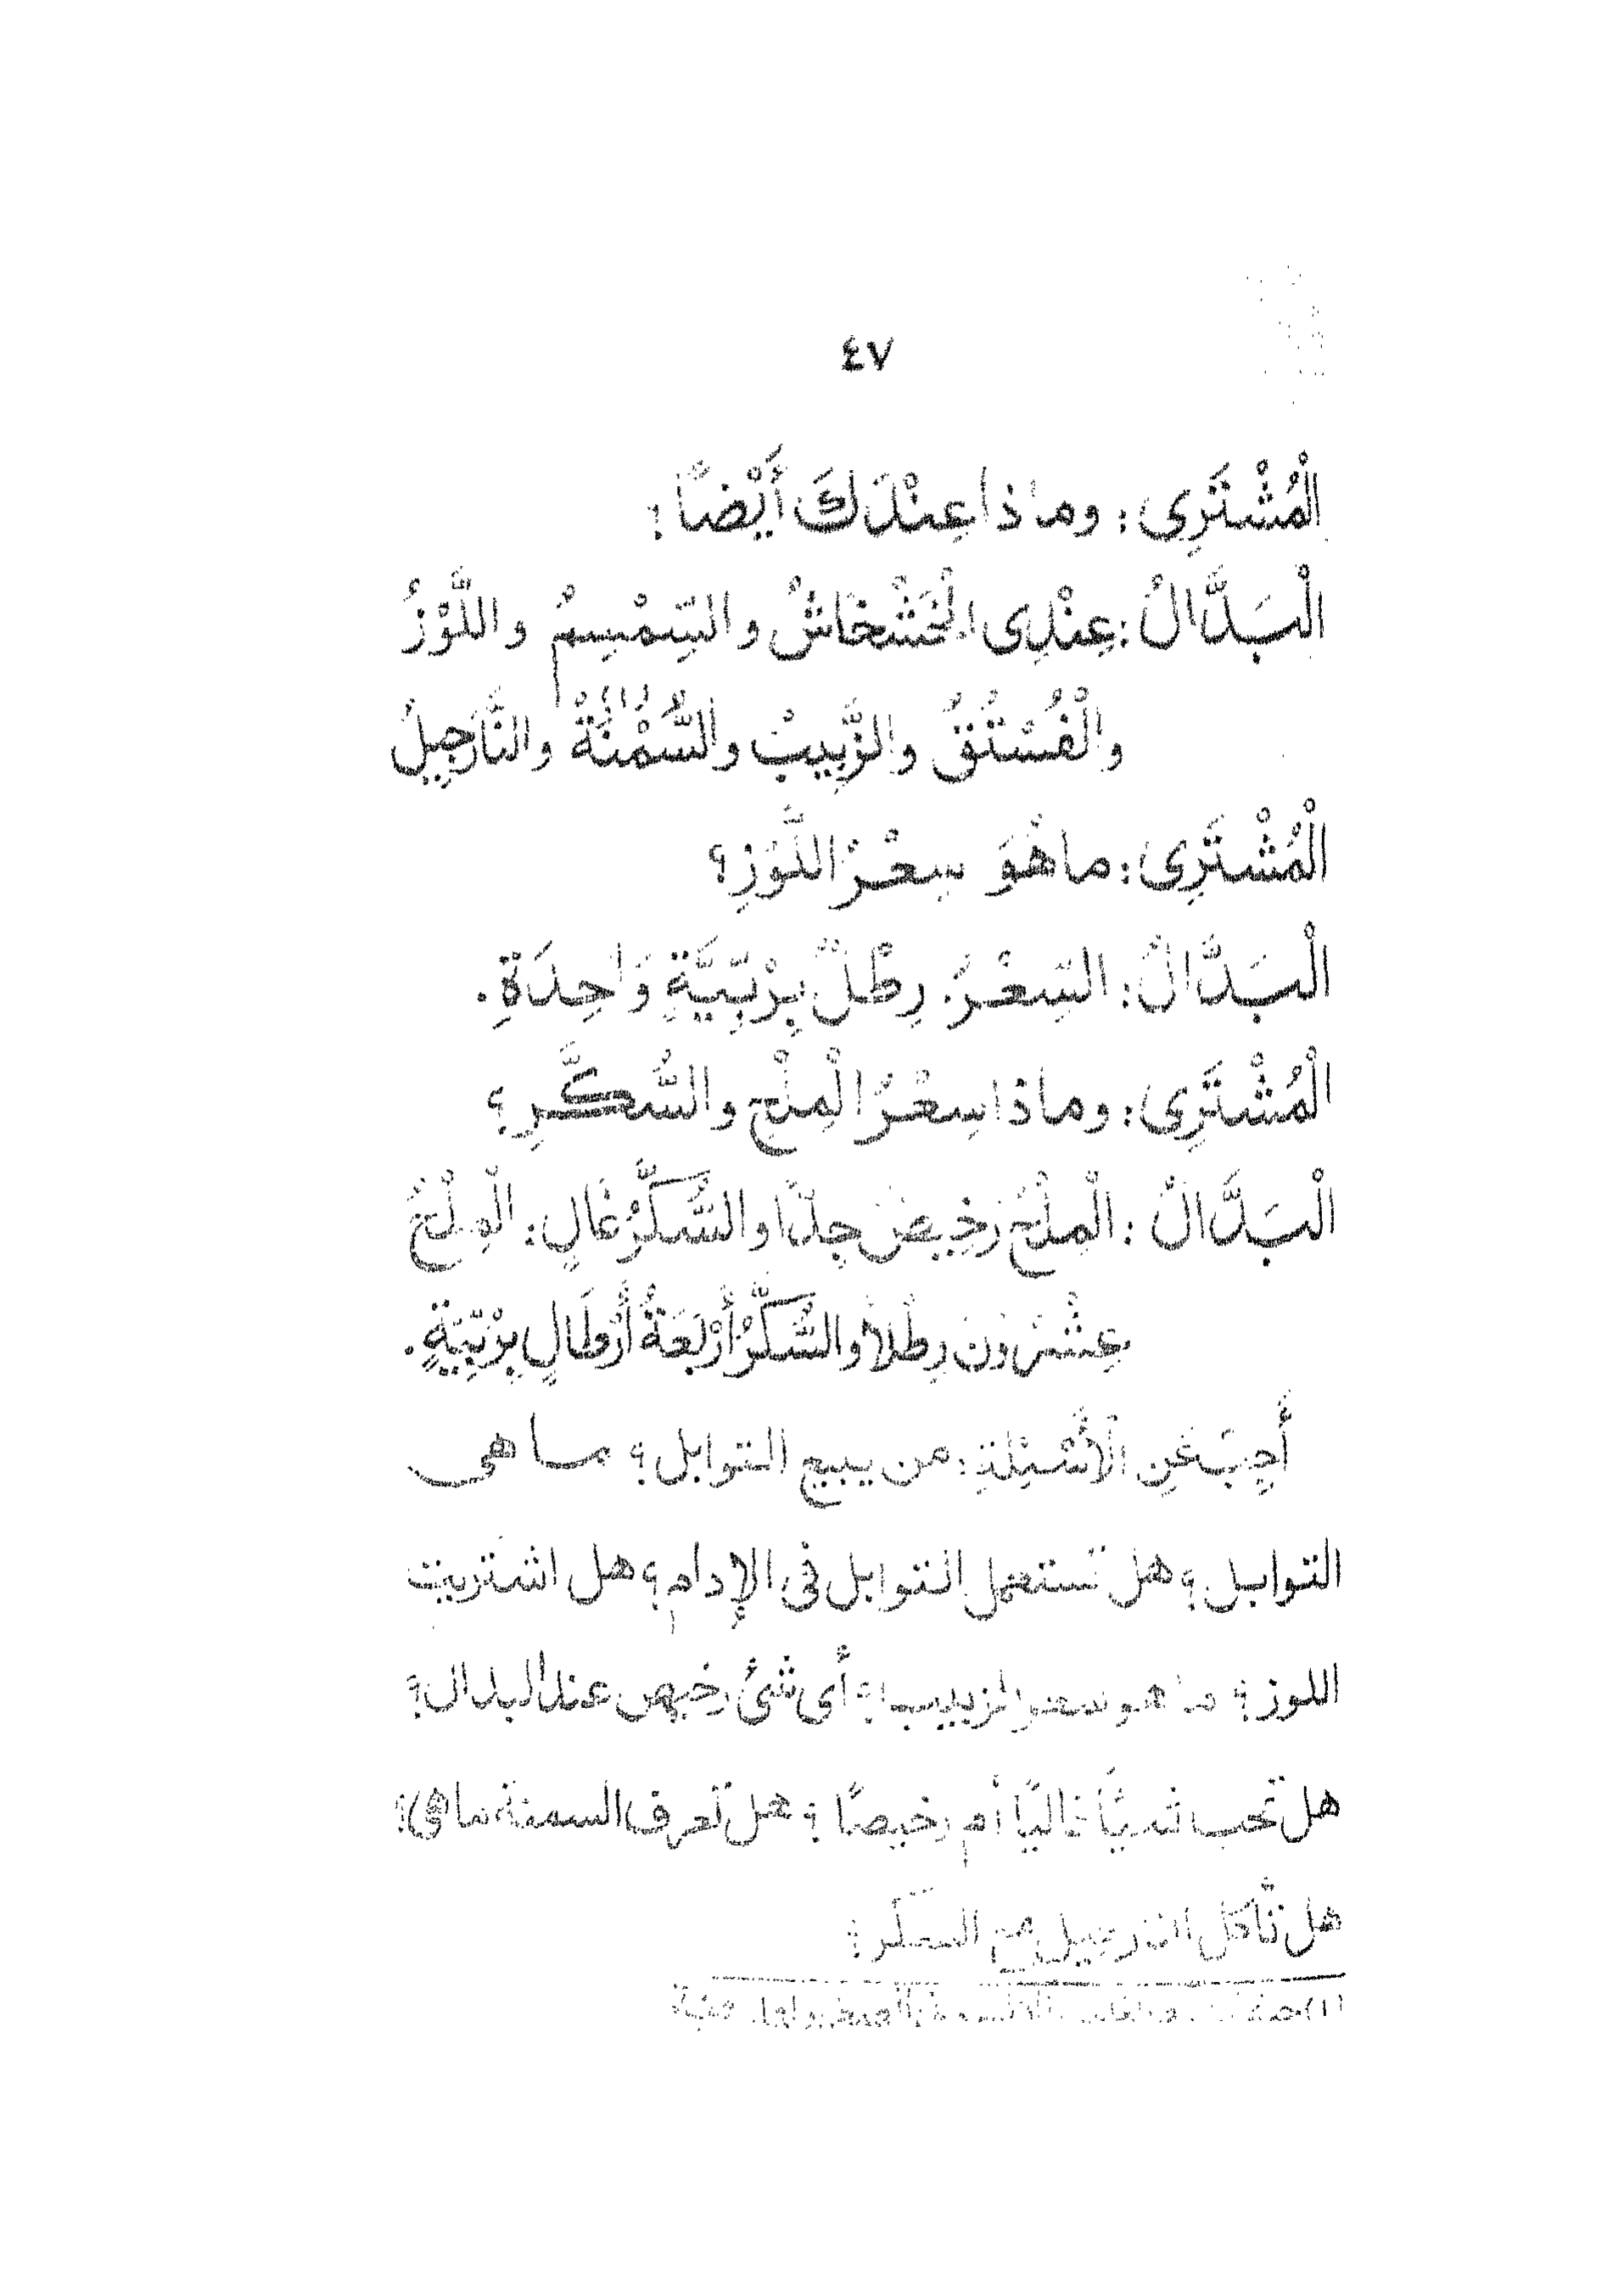 ٤٧
الْمُشْتَرِى : وماذا عِنْدَكَ أَيْضًا ؟
الْبَدَّالُ : عِنْدِى الْخَشْخَاشُ والسِّمْسِمُ واللَّوْزُ
والْفُسْتُقُ والزَّبِيبُ والسُّمْنَةُ (١) والنَّارَجِيلُ
الْمُشْتَرِى : ما هُوَ سِعْرُ اللَّوْزِ ؟
الْبَدَّالُ : السِّعْرُ رِطْلٌ بِرُبِّيَّةٍ وَاحِدَةٍ .
الْمُشْتَرِى : وماذا سِعْرُ الْمِلْحِ والسُّكَّرِ ؟
الْبَدَّالُ : الْمِلْحُ رَخِيصٌ جِدًّا والسُّكَّرُ غَالٍ : الْمِلْحُ
عِشْرُونَ رِطْلاً والسُّكَّرُ أَرْبَعَةُ أَرْطَالٍ بِرُبِّيَّةٍ .
أَجِبْ عَنِ الْأَسْئِلَةِ : من يبيع التوابل ؟ ما هى
التوابل ؟ هل تستعمل التوابل فى الإدام ؟ هل اشتريت
اللوز ؟ ما هو سعر الزبيب ؟ أى شئ رخيص عند البدال ؟
هل تحب شيئًا غاليًا أم رخيصًا ؟ هل تعرف السمنة ما هى ؟
هل تأكل النارجيل مع السكر ؟
(١)